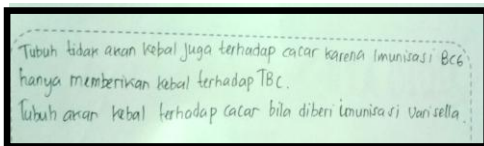 Tubuh tidak akan kebal juga terhadap cacar karena imunisasi BCG
hanya memberikan kebal terhadap TBC.
Tubuh akan kebal terhadap cacar bila diberi imunisasi Varisella.